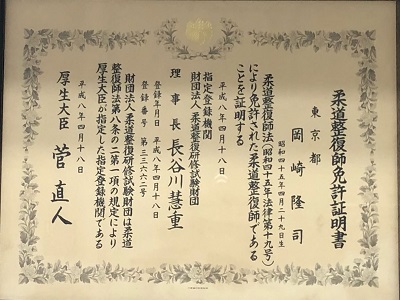 柔道整復師免許証明書
東京都
岡崎隆司
昭和四十五年四月二十九日生
柔道整復師法(昭和四十五年法律第十九号)
により免許された柔道整復師である
ことを証明する
平成八年四月十八日
指定登録機関
財団法人柔道整復研修試験財団
理事長 長谷川慧重
登録年月日 平成八年四月十八日
登録番号 第三三六六二号
財団法人柔道整復研修試験財団は柔道
整復師法第八条の二第一項の規定により
厚生大臣が指定した指定登録機関である
平成八年四月十八日
厚生大臣 菅直人